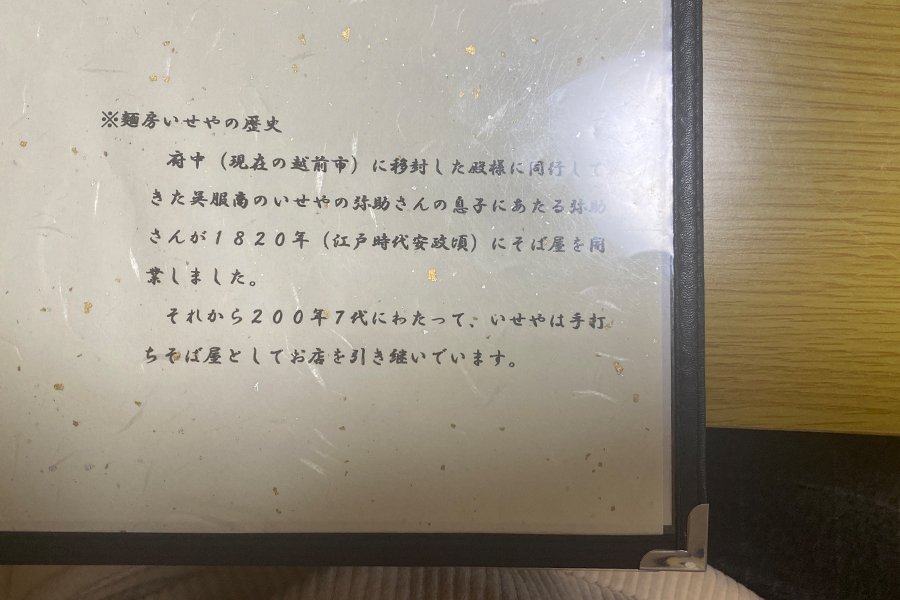 ※麺房いせやの歴史
府中（現在の越前市）に移封した殿様に同行して
きた呉服商のいせやの弥助さんの息子にあたる弥助
さんが１８２０年（江戸時代安政頃）にそば屋を開
業しました。
それから２００年７代にわたって、いせやは手打
ちそば屋としてお店を引き継いでいます。